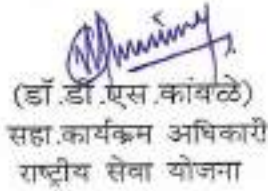 (डॉ.डी.एस.कांबळे)
सहा.कार्यक्रम अधिकारी
राष्ट्रीय सेवा योजना